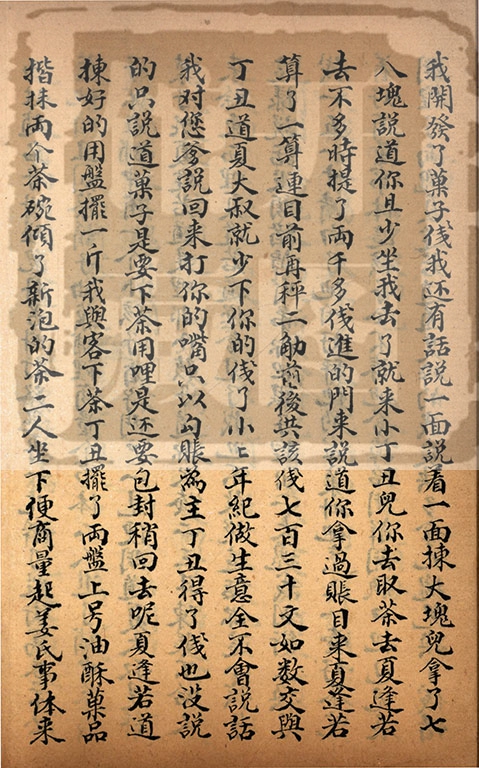 我開發了菓子伐我还有話說一面說看一面揀大塊兒拿了七
八塊說道你且少坐我去了就来小丁丑兒你去取茶去夏逢若
去不多時提了両千多伐進的門来說道你拿過賬目来夏逢若
算了一算連目前再秤二觔前後共該伐七百三十文如数交與
丁丑道夏大叔就少下你的伐了小小年紀做生意全不會說話
我对您爹說回来打你的嘴只以勾賬為主丁丑得了伐也没說
的只說道菓子是要下茶用哩是还要包封稍回去呢夏逢若道
揀好的用盤擺一斤我與客下茶丁丑擺了両盤上号油酥菓品
揩抹両个茶碗傾了新泡的茶二人坐下便商量起姜氏事体来